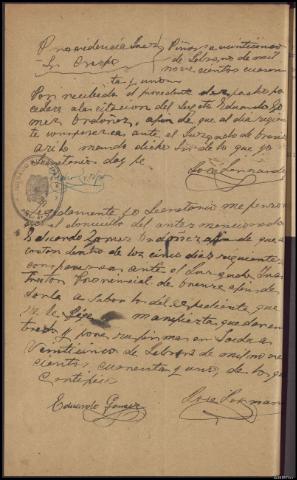 Providencia Juez
Sr Crespo
Piñor a veinticinco
de Febrero de mil
novecientos cuaren
ta y uno
Por recibido el precedente despacho pro
cedase a la citacion del sujeto Eduardo Go
mez Ordoñez, a fin de que al dia siguien
te comparezca ante el Juzgado de
mando dicho Sr de lo que yo
Secretario doy fe
Jose Fernandez
Seguidamente yo Secretario me persone
el domicilio del antes mencionado
Eduardo Gomez Ordoñez a fin de que
dentro de los cinco dias siguientes
comparezca ante el Juzgado Ins
tructor Provincial de Orense a fin de
del expediente que
se le sigue manifiesta quedar en
terado y pone su firma en
Veinticinco de Febrero de mil nove
cientos cuarenta y uno, de lo que
Certifico
Eduardo Gomez
Jose Fernan